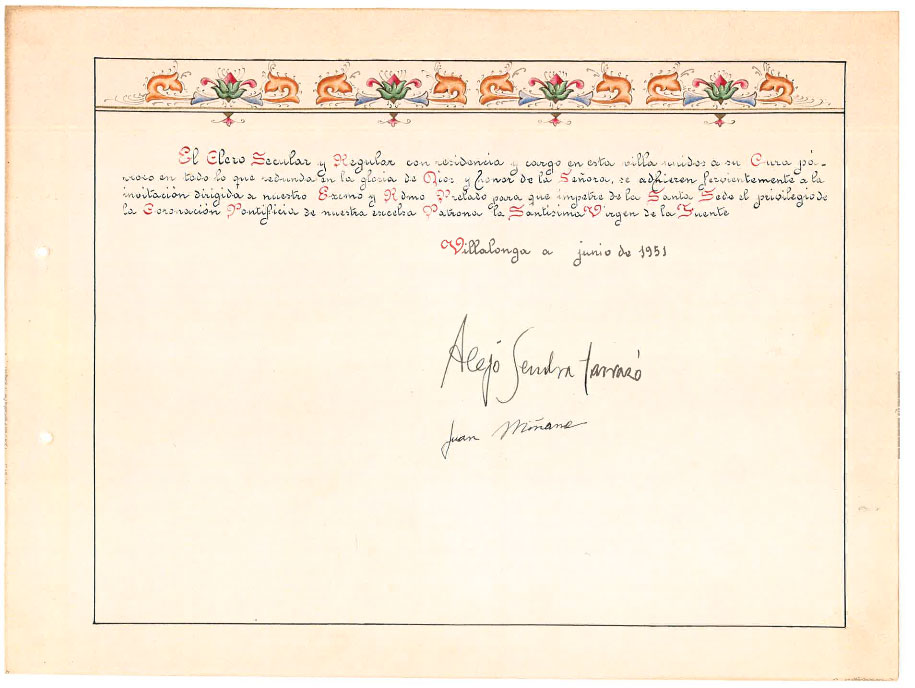 El Clero Secular y Regular con residencia y cargo en esta villa unidos a su Cura pá-
rroco en todo lo que redunda en la gloria de Dios y honor de la Señora, se adhieren fervientemente a la
invitación dirigida a nuestro Exmo y Rdmo Prelado para que impetre de la Santa Sede el privilegio de
la Coronación Pontificia de nuestra excelsa Patrona la Santísima Virgen de la Fuente
Villalonga a junio de 1951
Alejo Sendra Tarrazó
Juan Miñana